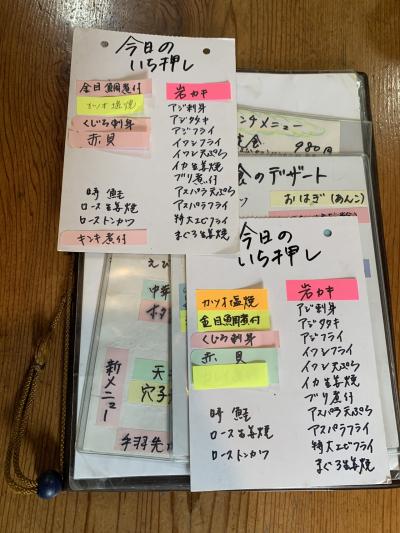 今日の
いち押し
金目鯛煮付
カツオ塩焼
くじら刺身
赤貝
時鮭
ロース生姜焼
ローストンカツ
キンキ煮付
岩カキ
アジ刺身
アジタタキ
アジフライ
イワシフライ
イワシ天ぷら
イカ生姜焼
ブリ煮付
アスパラ天ぷら
アスパラフライ
特大エビフライ
まぐろ生姜焼
ンチメニュー
定食
980円
食のデザート
おはぎ(あんこ)
えび
中華
新メニュー
天
穴子
手羽先
今日の
いち押し
カツオ塩焼
金目鯛煮付
くじら刺身
赤貝
時鮭
ロース生姜焼
ローストンカツ
岩カキ
アジ刺身
アジタタキ
アジフライ
イワシフライ
イワシ天ぷら
イカ生姜焼
ブリ煮付
アスパラ天ぷら
アスパラフライ
特大エビフライ
まぐろ生姜焼